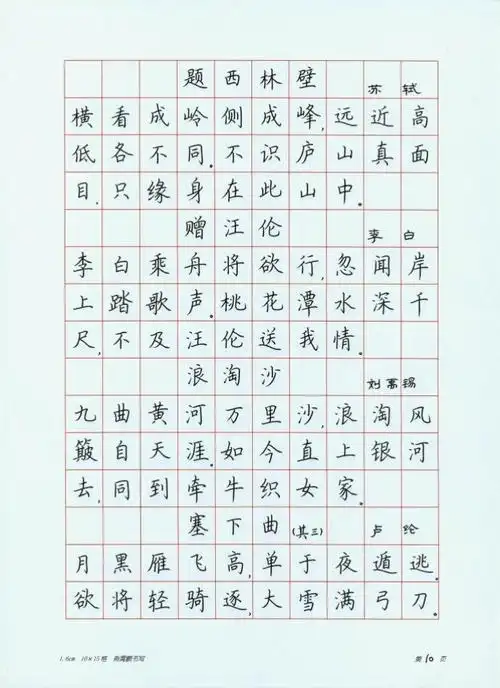 题西林壁 苏轼
横看成岭侧成峰,远近高
低各不同。不识庐山真面
目,只缘身在此山中。
赠汪伦 李白
李白乘舟将欲行,忽闻岸
上踏歌声。桃花潭水深千
尺,不及汪伦送我情。
浪淘沙 刘禹锡
九曲黄河万里沙,浪淘风
簸自天涯。如今直上银河
去,同到牵牛织女家。
塞下曲(其三) 卢纶
月黑雁飞高,单于夜遁逃。
欲将轻骑逐,大雪满弓刀。
1.6cm 10×15格 书写
第10页